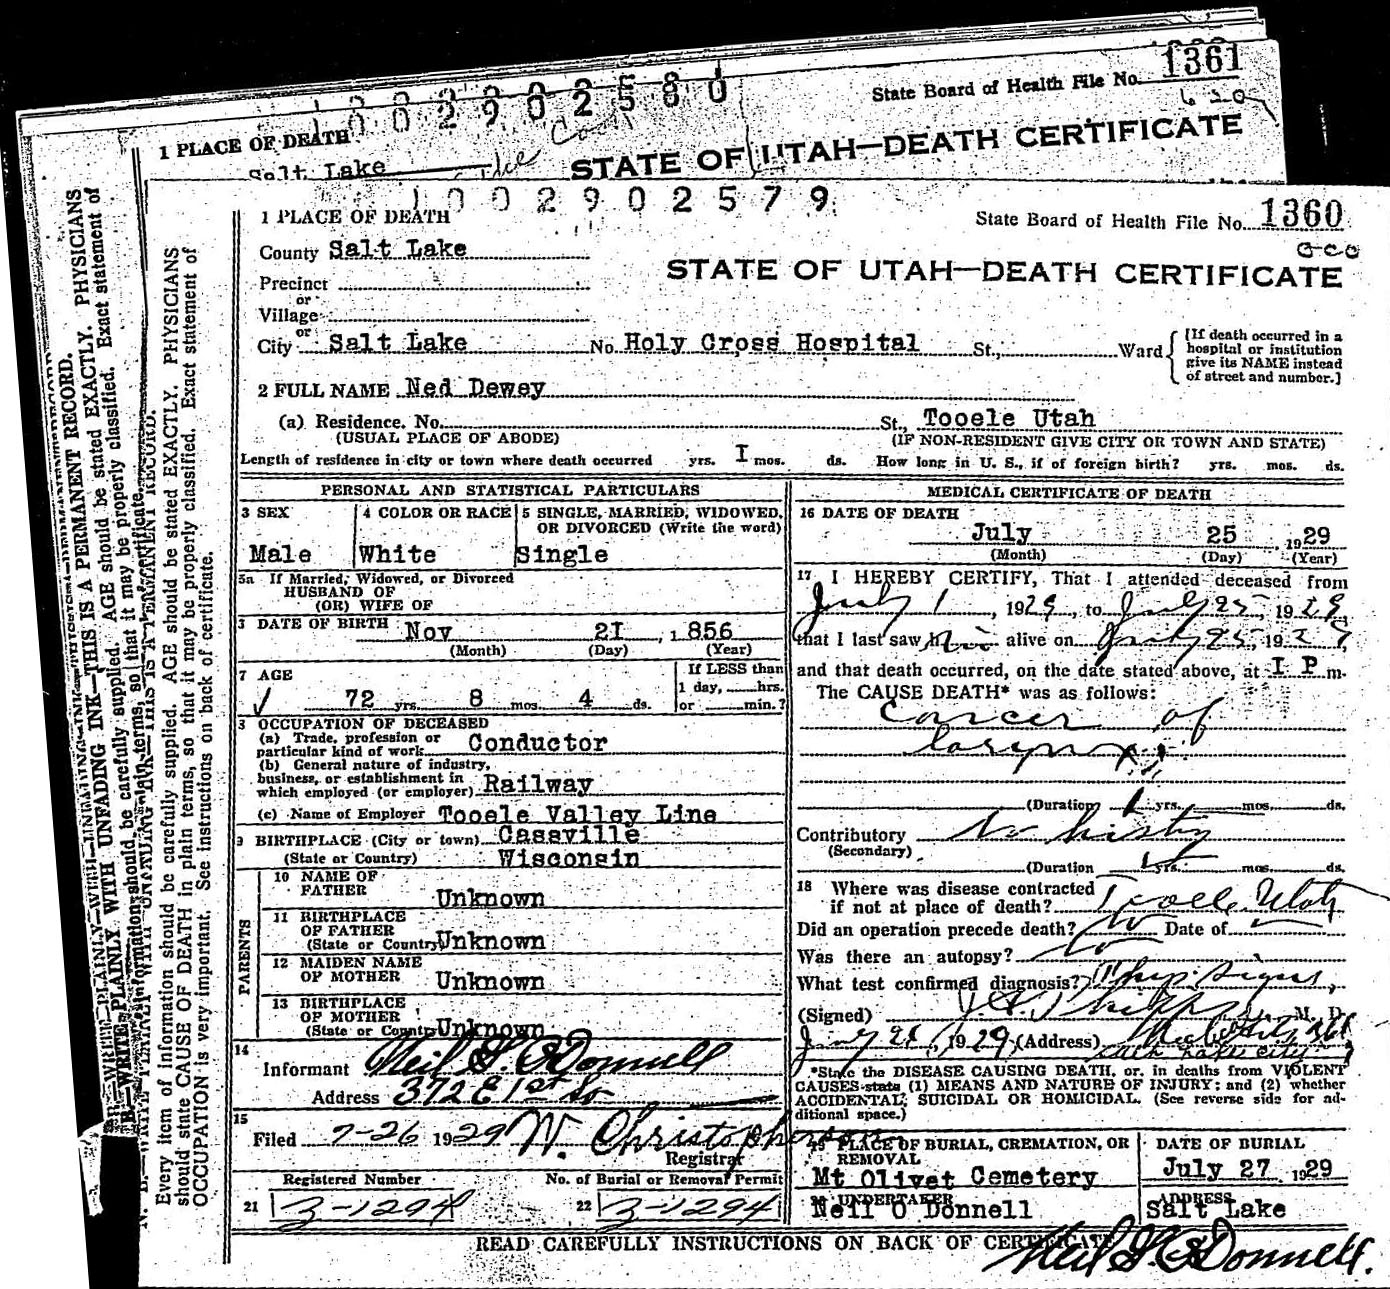 State Board of Health File No. 1361
620
1002902580
1 PLACE OF DEATH
Salt Lake
STATE OF UTAH—DEATH CERTIFICATE
1002902579
1 PLACE OF DEATH
State Board of Health File No. 1360
County Salt Lake
STATE OF UTAH—DEATH CERTIFICATE
Precinct
or
Village
or
City Salt Lake No. Holy Cross Hospital St., Ward
[If death occurred in a
hospital or institution
give its NAME instead
of street and number.]
2 FULL NAME Ned Dewey
(a) Residence. No. St., Tooele Utah
(USUAL PLACE OF ABODE) (IF NON-RESIDENT GIVE CITY OR TOWN AND STATE)
Length of residence in city or town where death occurred yrs. I mos. ds. How long in U. S., if of foreign birth? yrs. mos. ds.
PERSONAL AND STATISTICAL PARTICULARS
3 SEX 4 COLOR OR RACE 5 SINGLE, MARRIED, WIDOWED,
OR DIVORCED (Write the word)
Male White Single
5a If Married, Widowed, or Divorced
HUSBAND OF
(OR) WIFE OF
DATE OF BIRTH Nov 2I, 1856
(Month) (Day) (Year)
7 AGE If LESS than
72 yrs. 8 mos. 4 ds. 1 day, hrs.
or min.?
OCCUPATION OF DECEASED
(a) Trade, profession or
particular kind of work Conductor
(b) General nature of industry,
business, or establishment in
which employed (or employer) Railway
(c) Name of Employer Tooele Valley Line
9 BIRTHPLACE (City or town) Cassville
(State or Country) Wisconsin
PARENTS
10 NAME OF
FATHER Unknown
11 BIRTHPLACE
OF FATHER
(State or Country) Unknown
12 MAIDEN NAME
OF MOTHER Unknown
13 BIRTHPLACE
OF MOTHER
(State or Country) Unknown
14
Informant Neil G O'Donnell
Address 372 E 1st So
15
Filed 7-26 1929 W. Christopherson
Registrar
Registered Number No. of Burial or Removal Permit
21 3-1294 22 3-1294
MEDICAL CERTIFICATE OF DEATH
16 DATE OF DEATH
July 25, 1929
(Month) (Day) (Year)
17 I HEREBY CERTIFY, That I attended deceased from
July 1, 1929, to July 25 1929,
that I last saw him alive on July 25, 1929,
and that death occurred, on the date stated above, at I P m.
The CAUSE DEATH* was as follows:
Cancer of
larynx
(Duration 1 yrs. mos. ds.
Contributory no history
(Secondary)
(Duration yrs. mos. ds.
18 Where was disease contracted
if not at place of death? Tooele Utah
Did an operation precede death? No Date of
Was there an autopsy? No
What test confirmed diagnosis? Phys. signs,
(Signed) M. D.
1929 (Address)
Salt Lake City
*State the DISEASE CAUSING DEATH, or, in deaths from VIOLENT
CAUSES state (1) MEANS AND NATURE OF INJURY; and (2) whether
ACCIDENTAL, SUICIDAL OR HOMICIDAL. (See reverse side for ad-
ditional space.)
19 PLACE OF BURIAL, CREMATION, OR
REMOVAL
Mt Olivet Cemetery
DATE OF BURIAL
July 27 1929
UNDERTAKER
Neil O Donnell
ADDRESS
Salt Lake
READ CAREFULLY INSTRUCTIONS ON BACK OF CERTIFICATE
Neil G O'Donnell.
WRITE PLAINLY WITH UNFADING INK—THIS IS A PERMANENT RECORD.
Every item of information should be carefully supplied. AGE should be stated EXACTLY. PHYSICIANS
should state CAUSE OF DEATH in plain terms, so that it may be properly classified. Exact statement of
OCCUPATION is very important. See instructions on back of certificate.